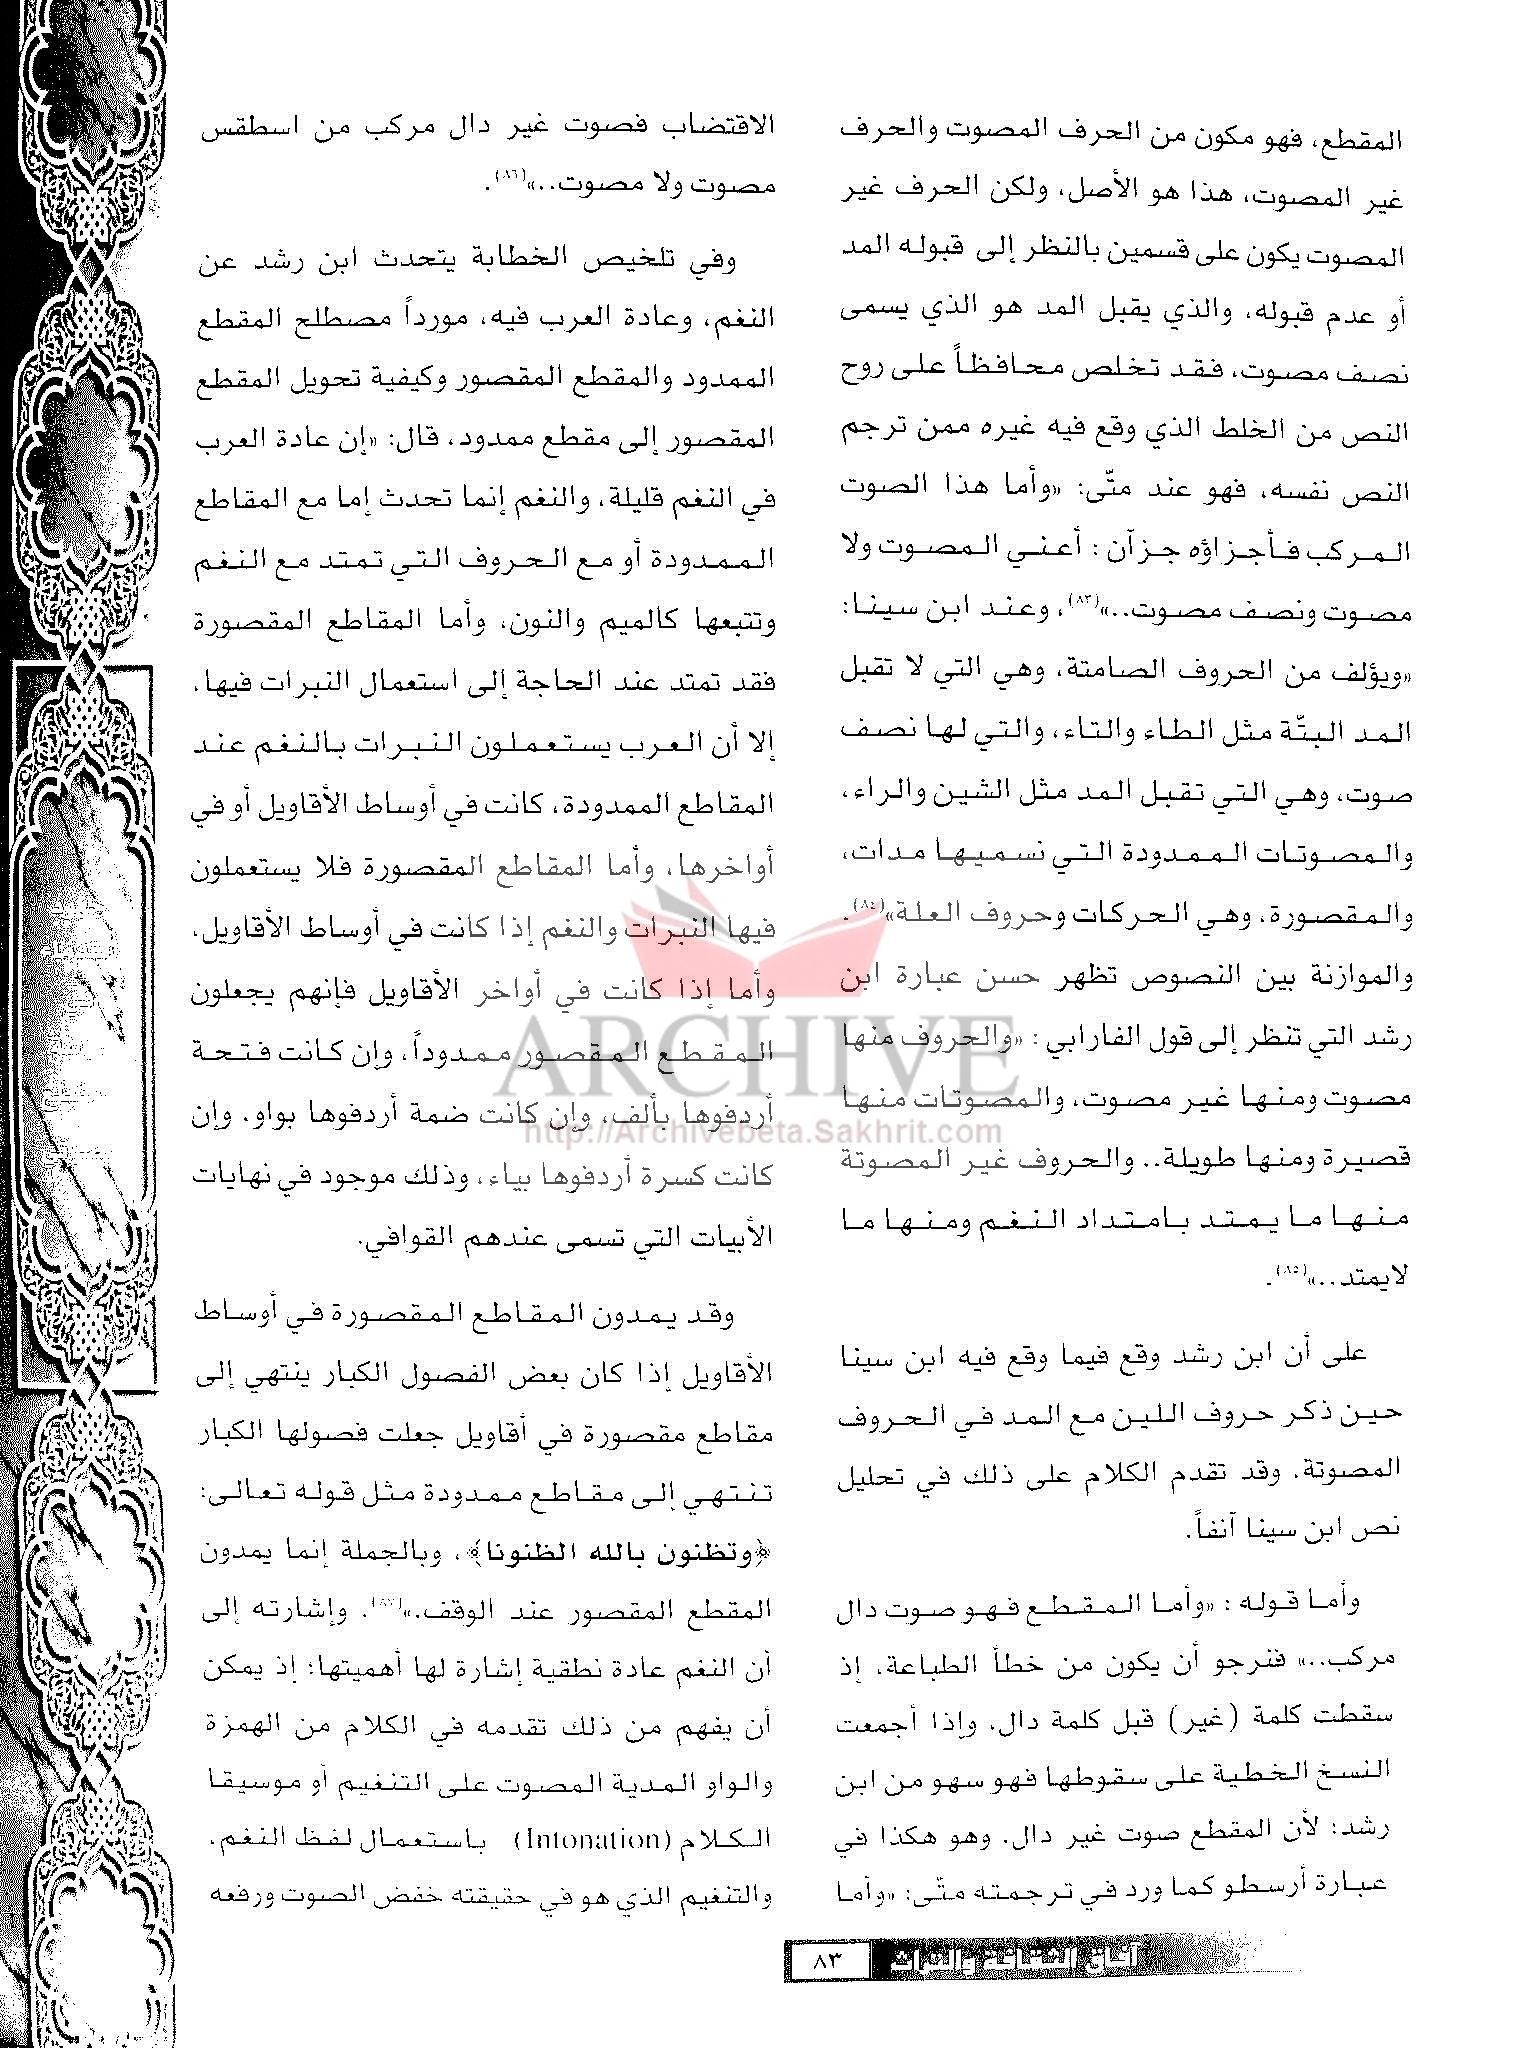 المقطع، فهو مكون من الحرف المصوت والحرف
غير المصوت، هذا هو الأصل، ولكن الحرف غير
المصوت يكون على قسمين بالنظر إلى قبوله المد
أو عدم قبوله، والذي يقبل المد هو الذي يسمى
نصف مصوت، فقد تخلص محافظاً على روح
النص من الخلط الذي وقع فيه غيره ممن ترجم
النص نفسه، فهو عند متّى: «وأما هذا الصوت
المركب فأجزاؤه جزآن: أعني المصوت ولا
مصوت ونصف مصوت..»(٨٣)، وعند ابن سينا:
«ويؤلف من الحروف الصامتة، وهي التي لا تقبل
المد البتّة مثل الطاء والتاء، والتي لها نصف
صوت، وهي التي تقبل المد مثل الشين والراء،
والمصوتات الممدودة التي نسميها مدات،
والمقصورة، وهي الحركات وحروف العلة»(٨٤).
والموازنة بين النصوص تظهر حسن عبارة ابن
رشد التي تنظر إلى قول الفارابي: «والحروف منها
مصوت ومنها غير مصوت، والمصوتات منها
قصيرة ومنها طويلة.. والحروف غير المصوتة
منها ما يمتد بامتداد النغم ومنها ما
لايمتد..»(٨٥).
على أن ابن رشد وقع فيما وقع فيه ابن سينا
حين ذكر حروف اللين مع المد في الحروف
المصوتة. وقد تقدم الكلام على ذلك في تحليل
نص ابن سينا آنفاً.
وأما قوله: «وأما المقطع فهو صوت دال
مركب..» فنرجو أن يكون من خطأ الطباعة، إذ
سقطت كلمة (غير) قبل كلمة دال، وإذا أجمعت
النسخ الخطية على سقوطها فهو سهو من ابن
رشد؛ لأن المقطع صوت غير دال. وهو هكذا في
عبارة أرسطو كما ورد في ترجمته متّى: «وأما
الاقتضاب فصوت غير دال مركب من اسطقس
مصوت ولا مصوت..»(٨٦).
وفي تلخيص الخطابة يتحدث ابن رشد عن
النغم، وعادة العرب فيه، مورداً مصطلح المقطع
الممدود والمقطع المقصور وكيفية تحويل المقطع
المقصور إلى مقطع ممدود، قال: «إن عادة العرب
في النغم قليلة، والنغم إنما تحدث إما مع المقاطع
الممدودة أو مع الحروف التي تمتد مع النغم
وتتبعها كالميم والنون، وأما المقاطع المقصورة
فقد تمتد عند الحاجة إلى استعمال النبرات فيها،
إلا أن العرب يستعملون النبرات بالنغم عند
المقاطع الممدودة، كانت في أوساط الأقاويل أو في
أواخرها، وأما المقاطع المقصورة فلا يستعملون
فيها النبرات والنغم إذا كانت في أوساط الأقاويل،
وأما إذا كانت في أواخر الأقاويل فإنهم يجعلون
المقطع المقصور ممدوداً، وإن كانت فتحة
أردفوها بألف، وإن كانت ضمة أردفوها بواو. وإن
كانت كسرة أردفوها بياء، وذلك موجود في نهايات
الأبيات التي تسمى عندهم القوافي.
وقد يمدون المقاطع المقصورة في أوساط
الأقاويل إذا كان بعض الفصول الكبار ينتهي إلى
مقاطع مقصورة في أقاويل جعلت فصولها الكبار
تنتهي إلى مقاطع ممدودة مثل قوله تعالى:
﴿وتظنون بالله الظنونا﴾، وبالجملة إنما يمدون
المقطع المقصور عند الوقف.»(٨٧). وإشارته إلى
أن النغم عادة نطقية إشارة لها أهميتها؛ إذ يمكن
أن يفهم من ذلك تقدمه في الكلام من الهمزة
والواو المدية المصوت على التنغيم أو موسيقا
الكلام (Intonation) باستعمال لفظ النغم.
والتنغيم الذي هو في حقيقته خفض الصوت ورفعه
آفاق الثقافة والتراث ٨٣
ARCHIVE
http://Archivebeta.Sakhrit.com